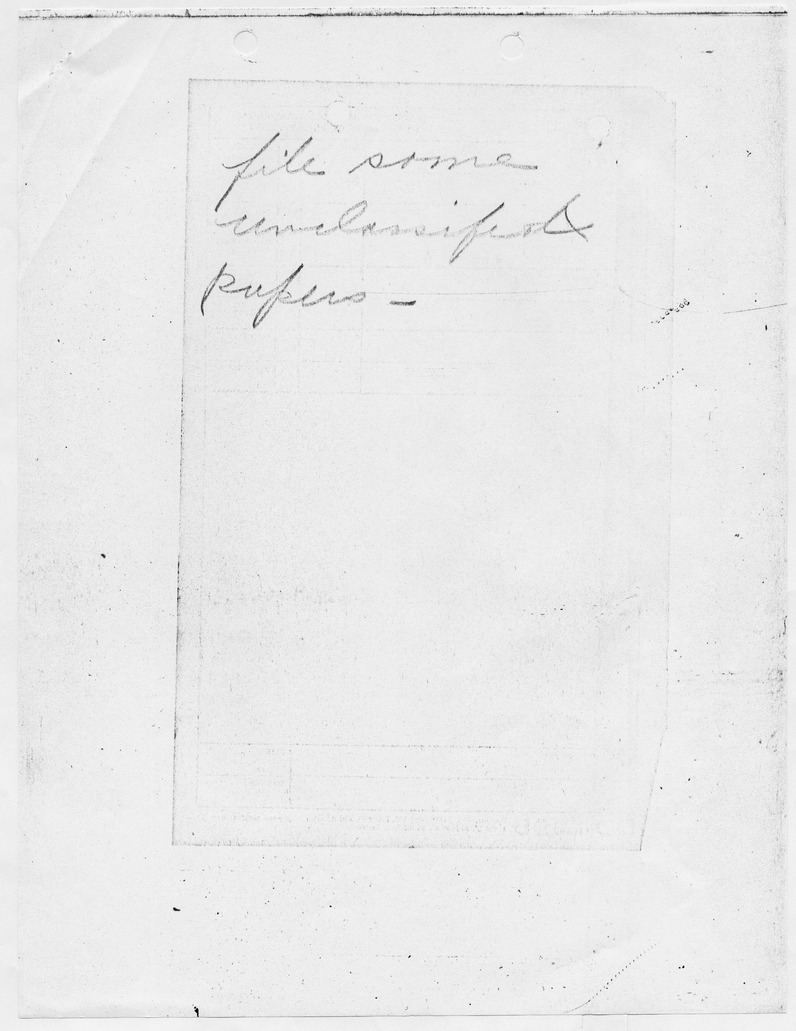 file some
unclassified
papers -